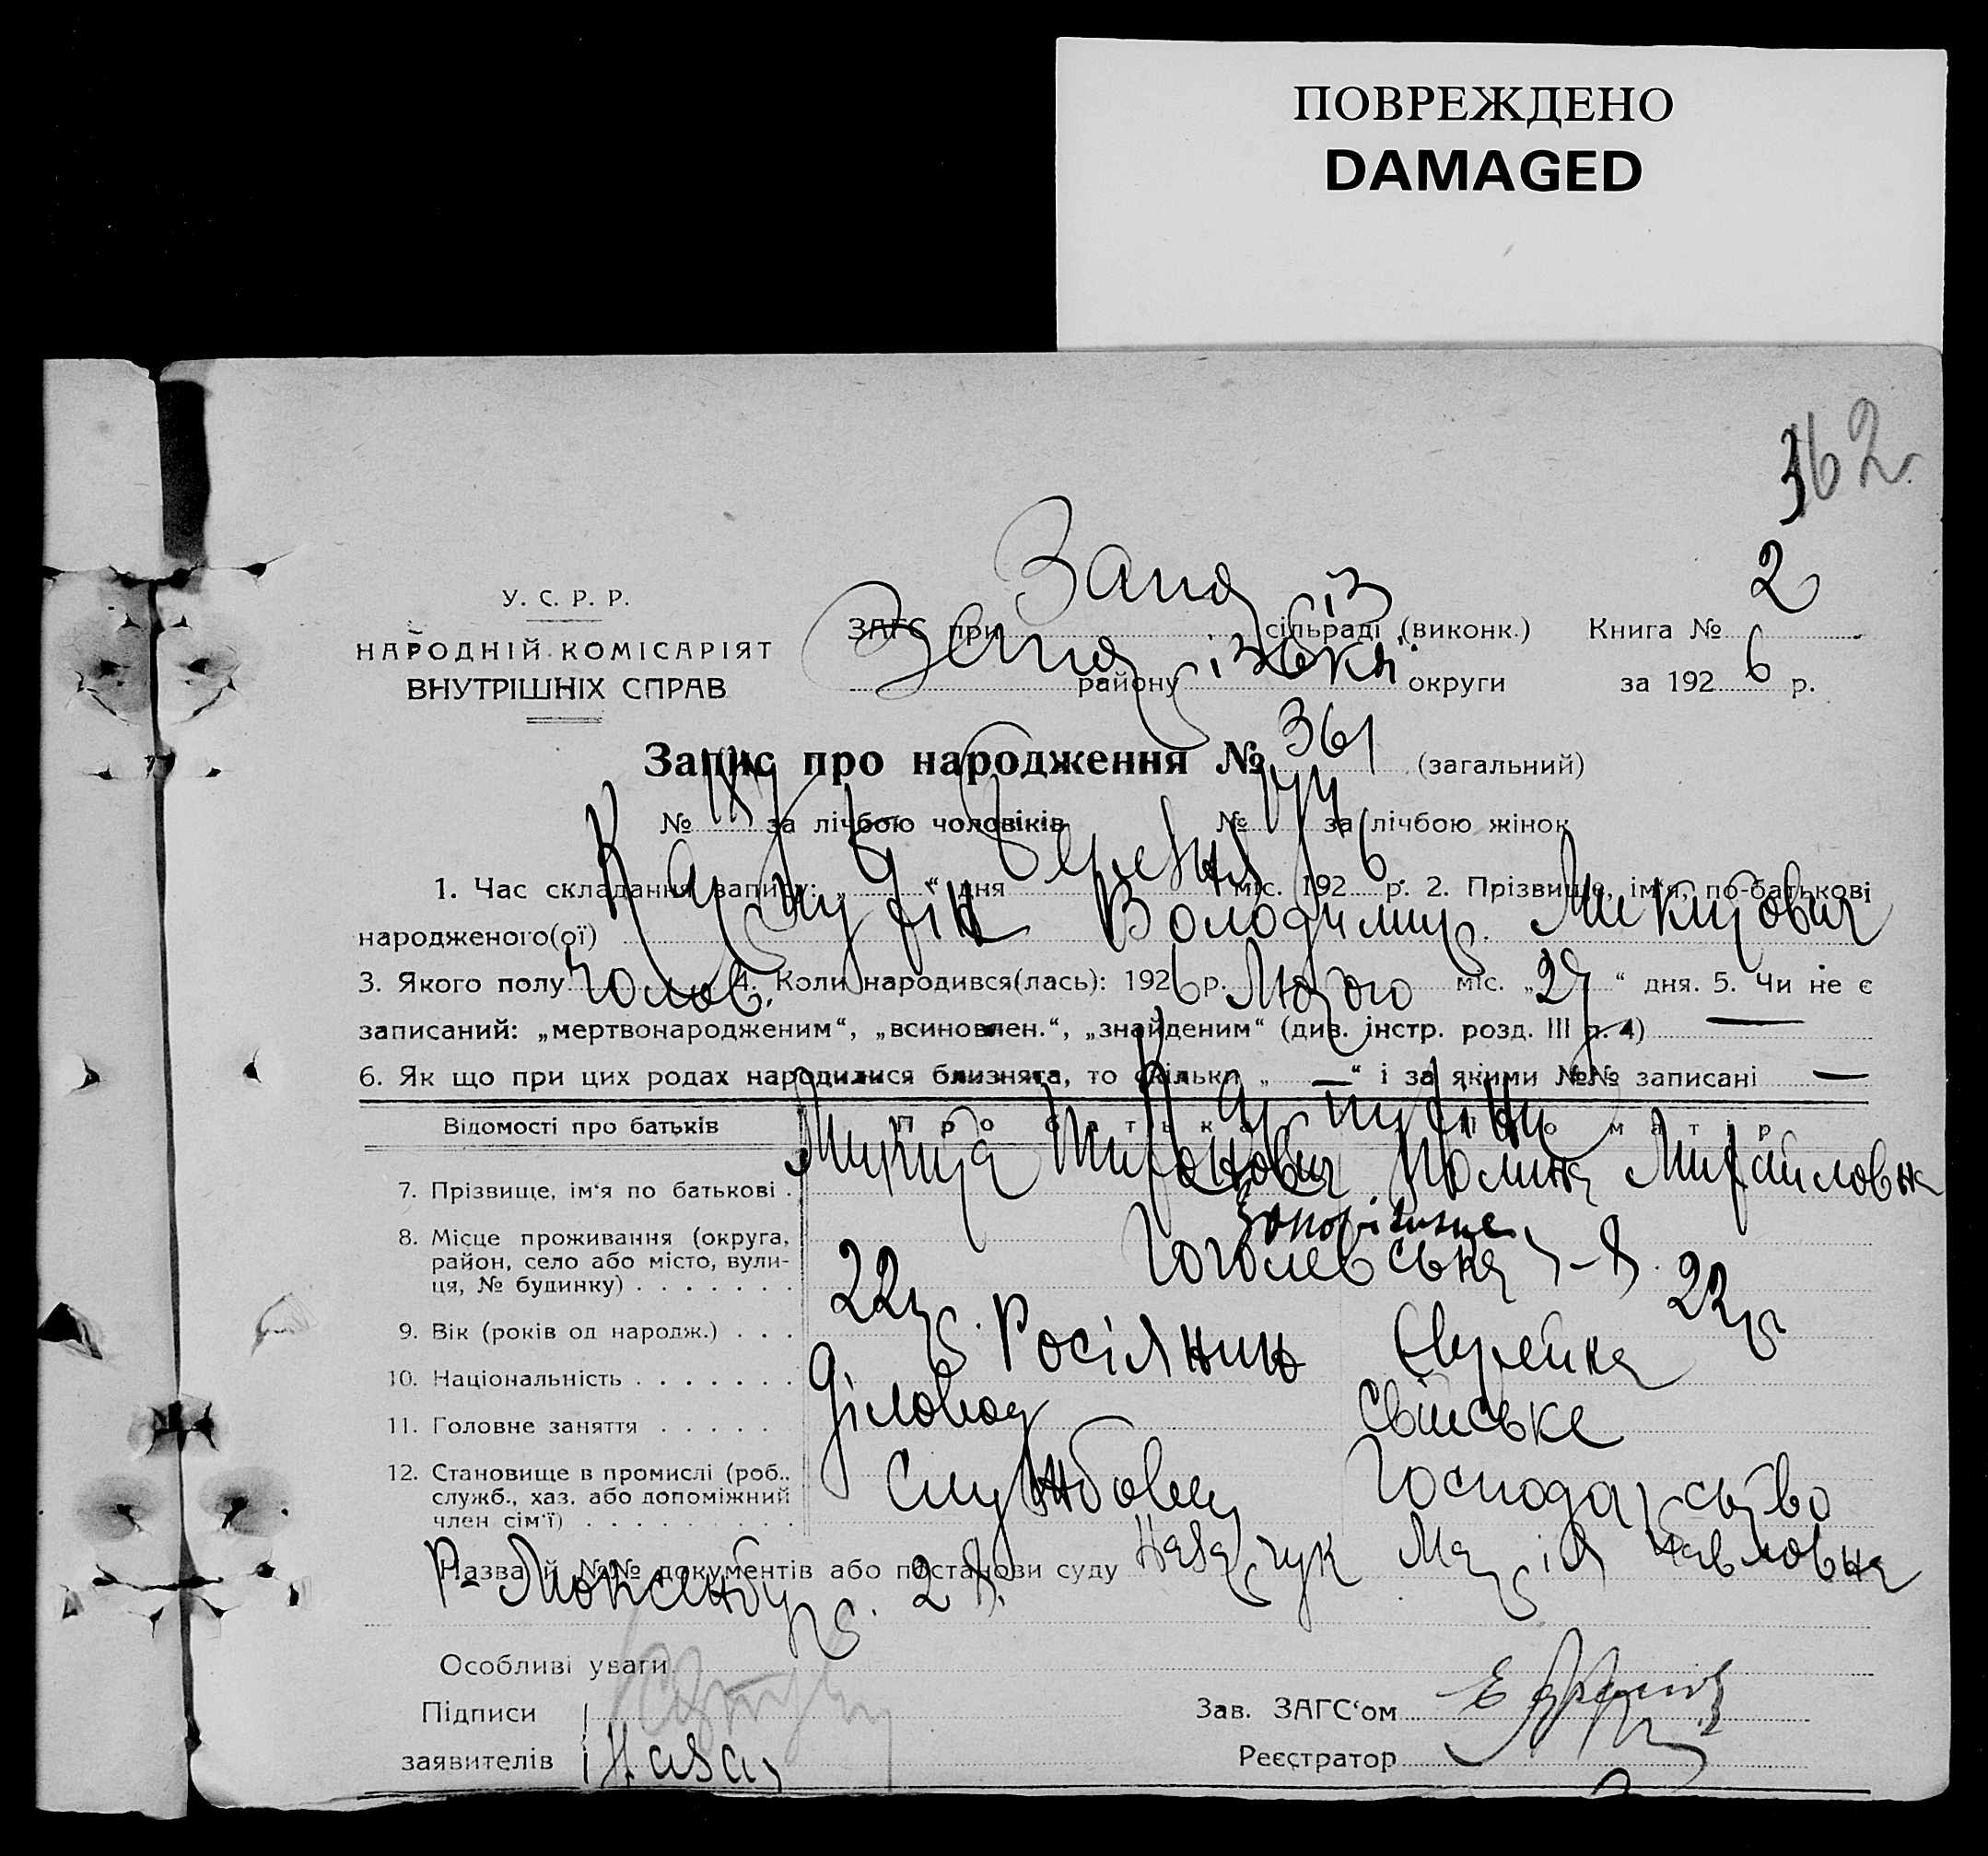 ПОВРЕЖДЕНО
DAMAGED
362
У. С. Р. Р.
НАРОДНІЙ КОМІСАРІЯТ
ВНУТРІШНІХ СПРАВ
ЗАГС при сільраді (виконк.) Книга № 2
району округи за 1926 р.
Запис про народження № 361 (загальний)
№ за лічбою чоловіків № за лічбою жінок
1. Час складання запису: „ 9 “ дня Березня міс. 1926 р. 2. Прізвище, ім'я, по-батькові
народженого(ої) Володимир
3. Якого полу Чолов. 4. Коли народився(лась): 1926 р. Лютого міс. „27“ дня. 5. Чи не є
записаний: „мертвонародженим“, „всиновлен.“, „знайденим“ (див. інстр. розд. III п. 4) —
6. Як що при цих родах народилися близнята, то скільки „ — “ і за якими №№ записані —
Відомості про батьків Про батька Про матір
7. Прізвище, ім'я по батькові . Полина Михайловна
8. Місце проживання (округа,
район, село або місто, вули-
ця, № будинку) . . . . . . . Запоріжжє, Гоголевська
9. Вік (років од народж.) . . . 22 р. 22 р.
10. Національність . . . . . . . Росіянин Єврейка
11. Головне заняття . . . . . Діловод Свійське
12. Становище в промислі (роб.,
служб., хаз. або допоміжний
член сім'ї) . . . . . . . . . Службовец Господарство
Назва й №№ документів або постанови суду Назарчук Марія Павловна
Р. Люксенбург. 28.
Особливі уваги
Підписи
заявителів Назар
Зав. ЗАГС'ом
Реєстратор